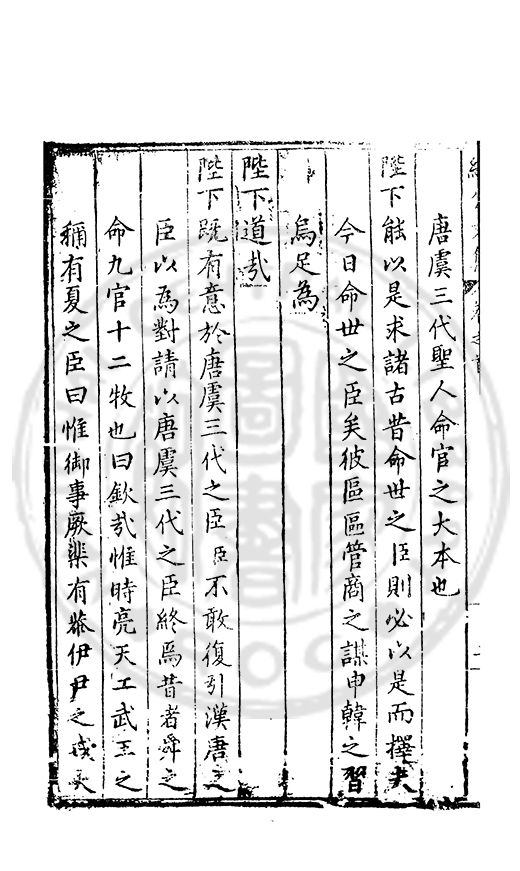 唐虞三代聖人命官之大本也
陛下能以是求諸古昔命世之臣則必以是而擇夫
今日命世之臣矣彼區區管商之謀申韓之習
烏足為
陛下道哉
陛下既有意於唐虞三代之臣臣不敢復引漢唐之
臣以為對請以唐虞三代之臣終焉昔者舜之
命九官十二牧也曰欽哉惟時亮天工武王之
稱有夏之臣曰惟御事厥棐有恭伊尹之